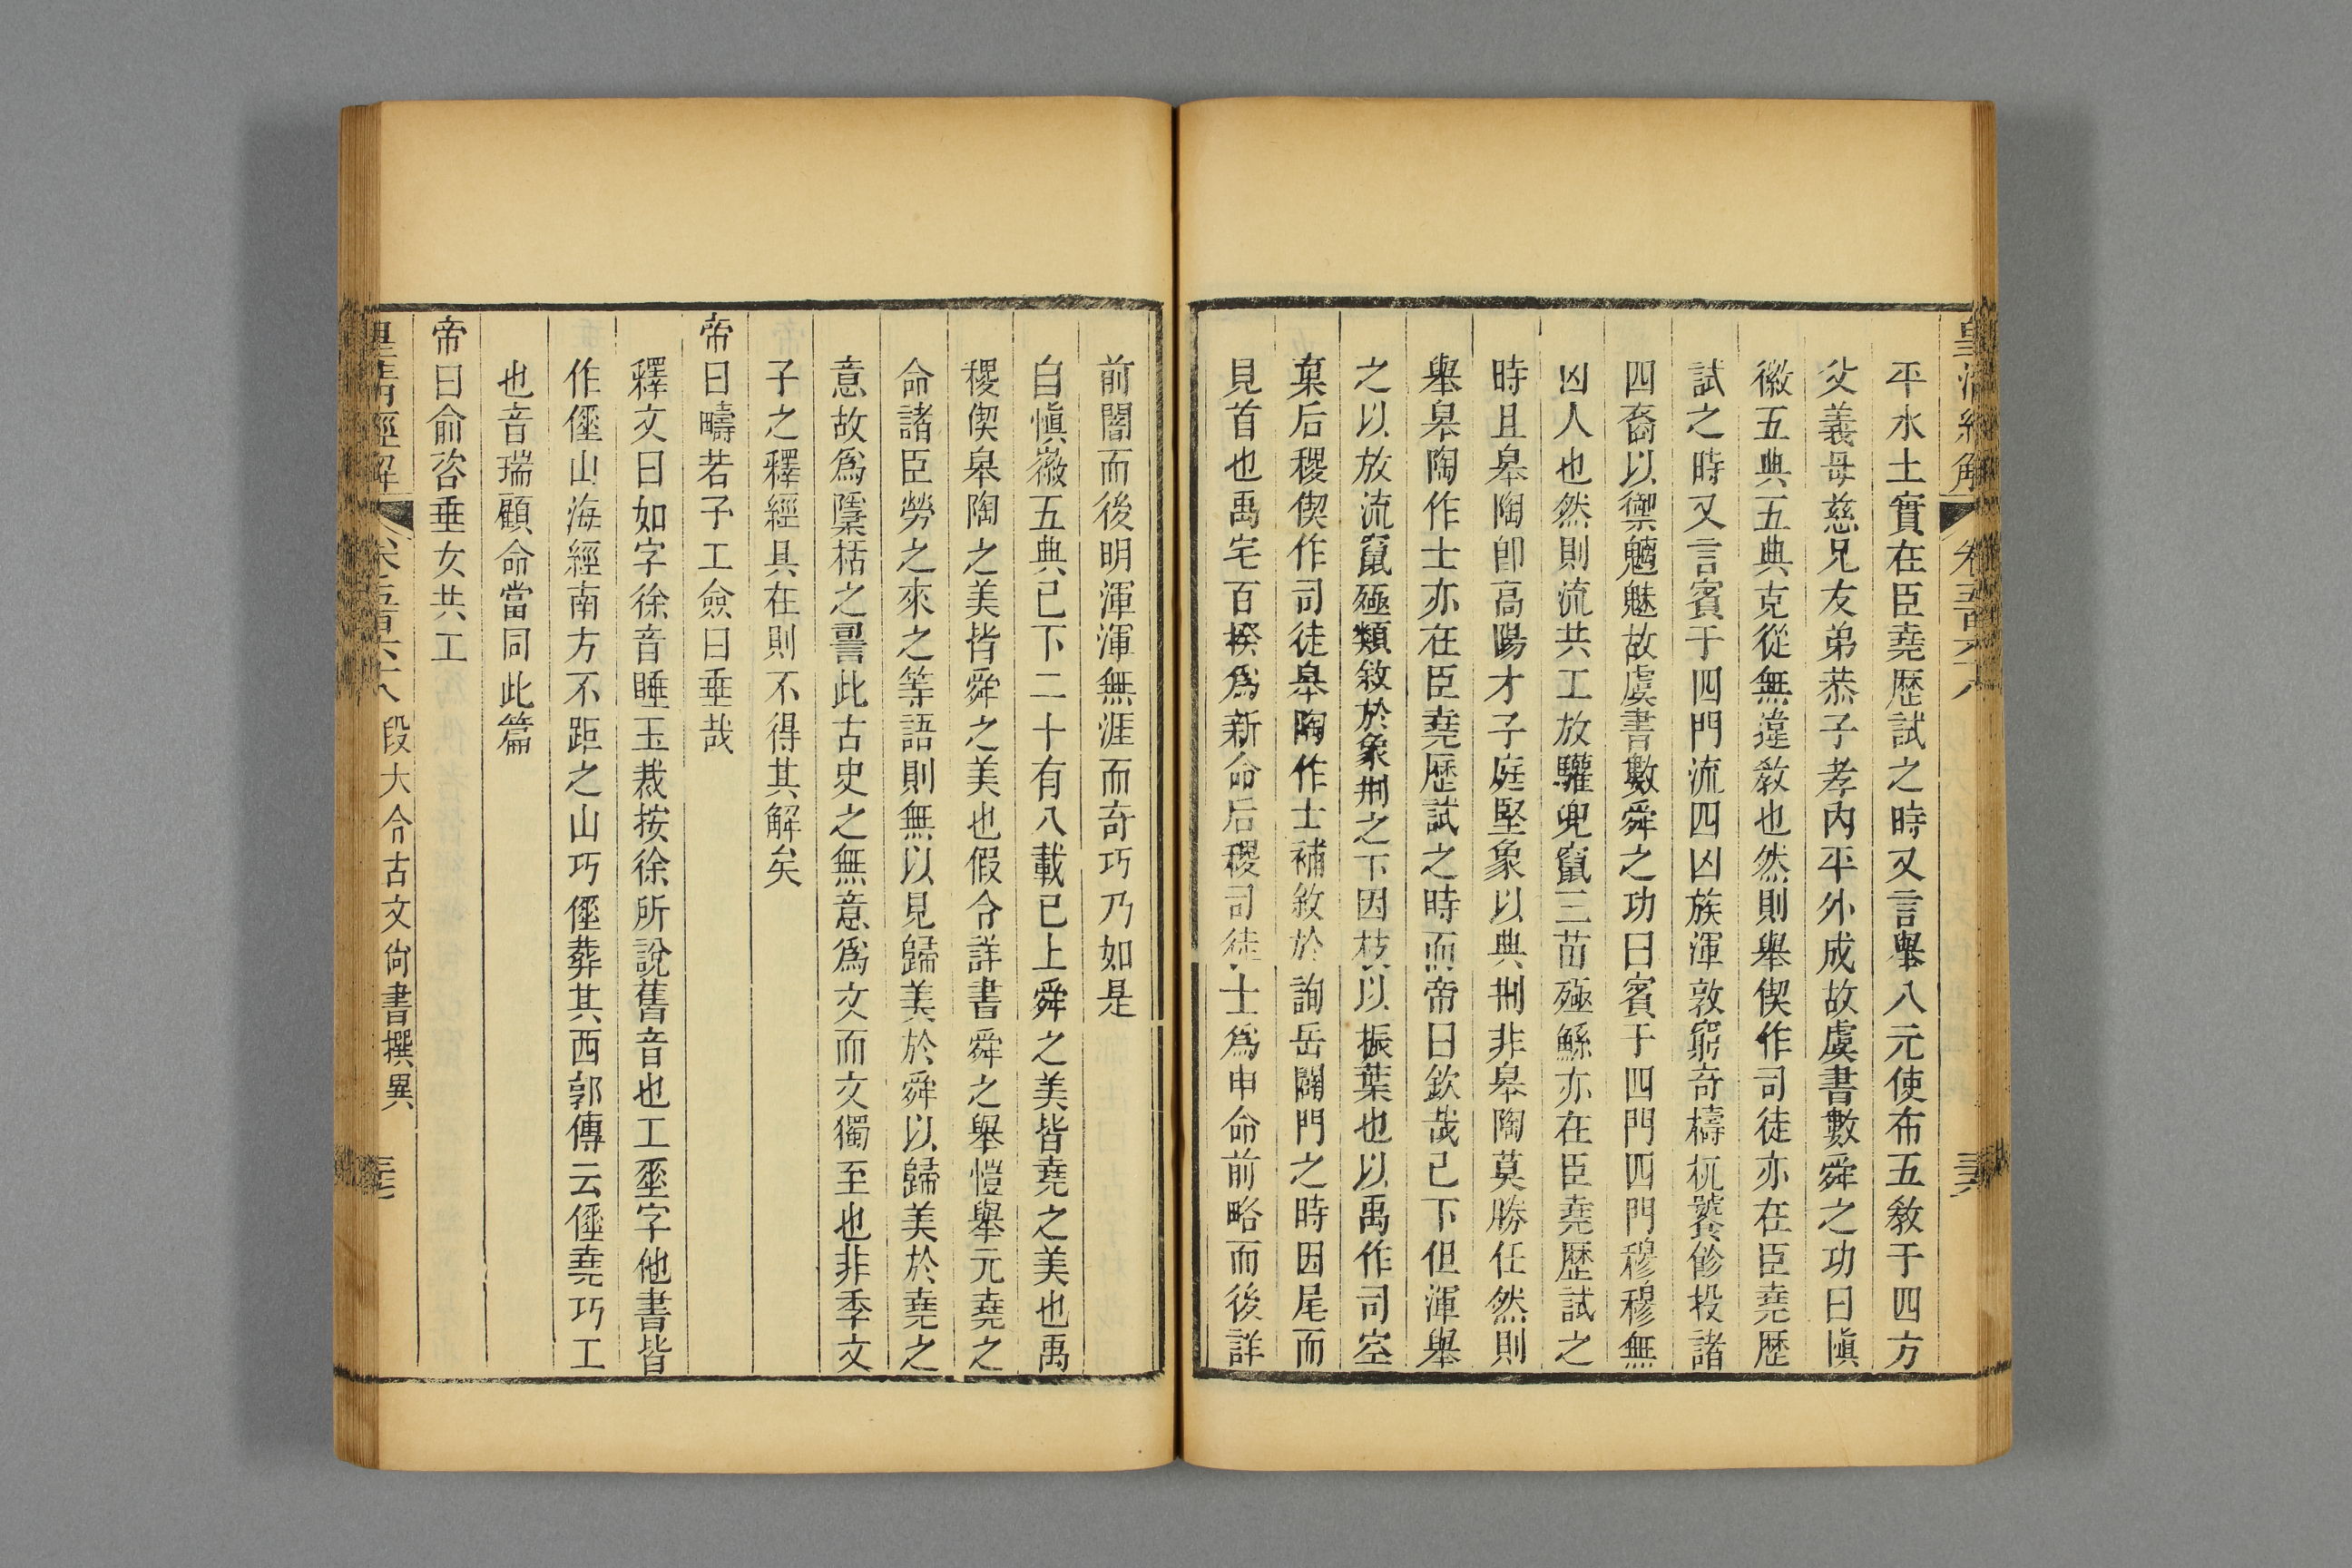 皇清經解 卷五百六十八 三六
平水土實在臣堯歷試之時又言舉八元使布五敎于四方
父義母慈兄友弟恭子孝內平外成故虞書數舜之功曰愼
徽五典五典克從無違敎也然則舉偰作司徒亦在臣堯歷
試之時又言賓于四門流四凶族渾敦窮奇檮杌饕飻投諸
四裔以禦魑魅故虞書數舜之功曰賓于四門四門穆穆無
凶人也然則流共工放驩兜竄三苗殛鯀亦在臣堯歷試之
時且皋陶卽高陽才子庭堅象以典刑非皋陶莫勝任然則
舉皋陶作士亦在臣堯歷試之時而帝曰欽哉已下但渾舉
之以放流竄殛類敘於象刑之下因枝以振葉也以禹作司空
棄后稷偰作司徒皋陶作士補敘於詢岳闢門之時因尾而
見首也禹宅百揆爲新命后稷司徒士爲申命前略而後詳
前闇而後明渾渾無涯而奇巧乃如是
自愼徽五典已下二十有八載已上舜之美皆堯之美也禹
稷偰皋陶之美皆舜之美也假令詳書舜之舉愷舉元堯之
命諸臣勞之來之等語則無以見歸美於舜以歸美於堯之
意故爲隱桰之書此古史之無意爲文而文獨至也非季文
子之釋經具在則不得其解矣
帝曰疇若予工僉曰垂哉
釋文曰如字徐音睡玉裁按徐所說舊音也工垂字他書皆
作倕山海經南方不距之山巧倕葬其西郭傳云倕堯巧工
也音瑞顧命當同此篇
帝曰俞咨垂女共工
皇淸經解 卷五百六十八 段大令古文尙書撰異 三七